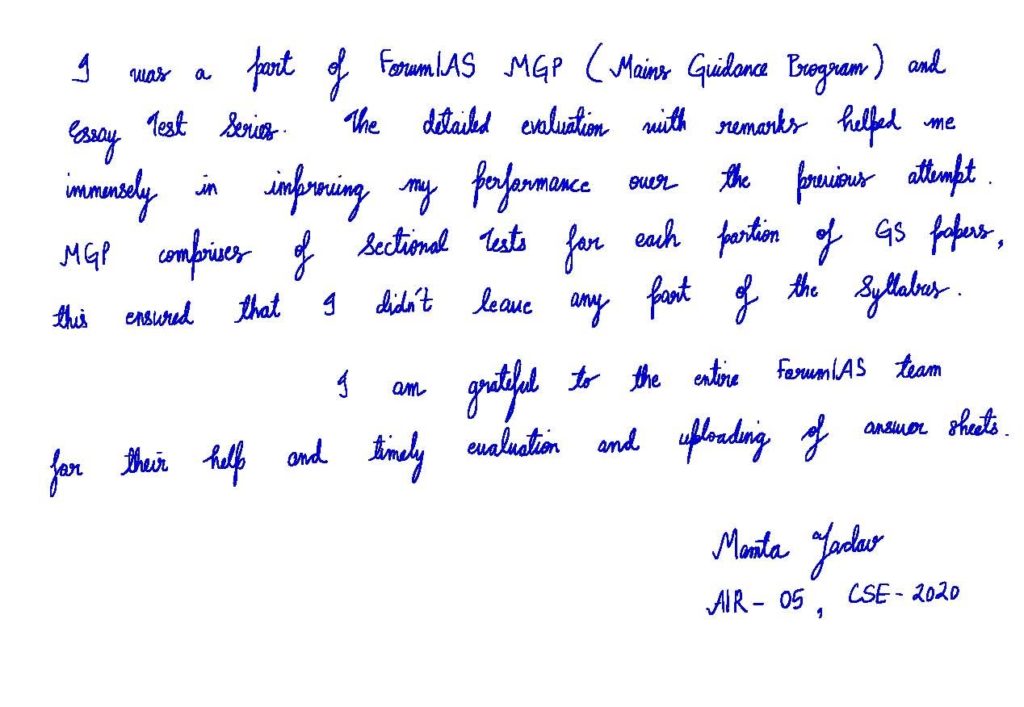 I was a part of ForumIAS MGP (Mains Guidance Program) and
Essay Test Series. The detailed evaluation with remarks helped me
immensely in improving my performance over the previous attempt.
MGP comprises of Sectional Tests for each portion of GS papers,
this ensured that I didn't leave any part of the Syllabus.
I am grateful to the entire ForumIAS team
for their help and timely evaluation and uploading of answer sheets.
Mamta Yadav
AIR - 05, CSE - 2020